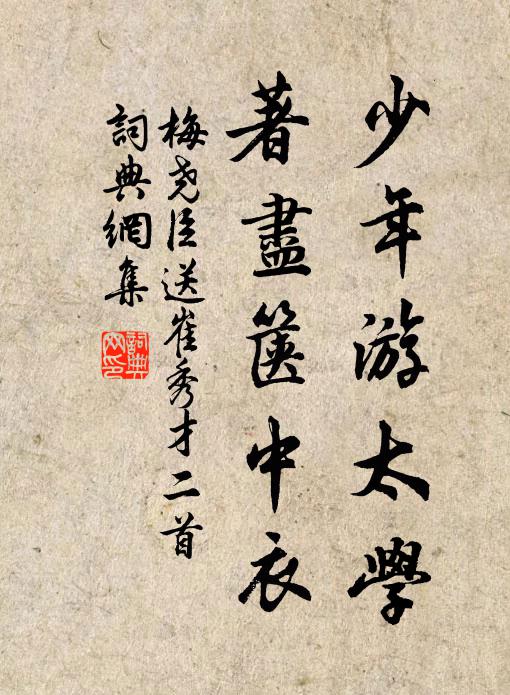 少年游太學
著盡篋中衣
梅堯臣送崔秀才二首
詞典網集
詞典
网印